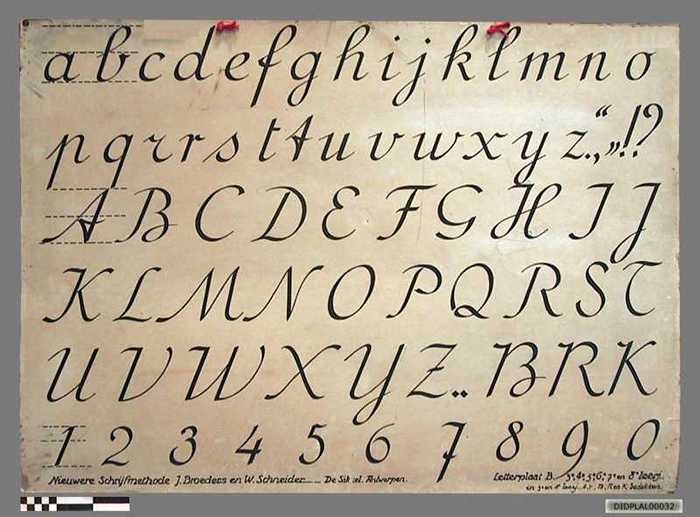 a b c d e f g h i j k l m n o
p q r r s t t u v w x y z . , “ „ ! ?
A B C D E F G H I J
K L M N O P Q R S T
U V W X Y Z .. B R K
1 2 3 4 5 6 7 8 9 0
Nieuwere Schrijfmethode J. Broeders en W. Schneider De Sikkel. Antwerpen.
Letterplaat B. 3e 4e 5e 6e 7e en 8e leerj.
en 3e en 4e leerj.
DIDPLAL00032